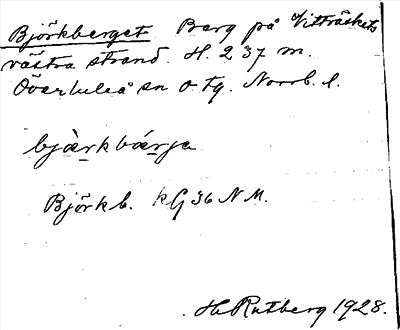 Björkberget Berg på Vitträskets
västra strand. H. 237 m.
Överluleå sn o tg. Norrb. l.
bjàrkbárja
Björkb. kG 36 N M.
H. Rutberg 1928.